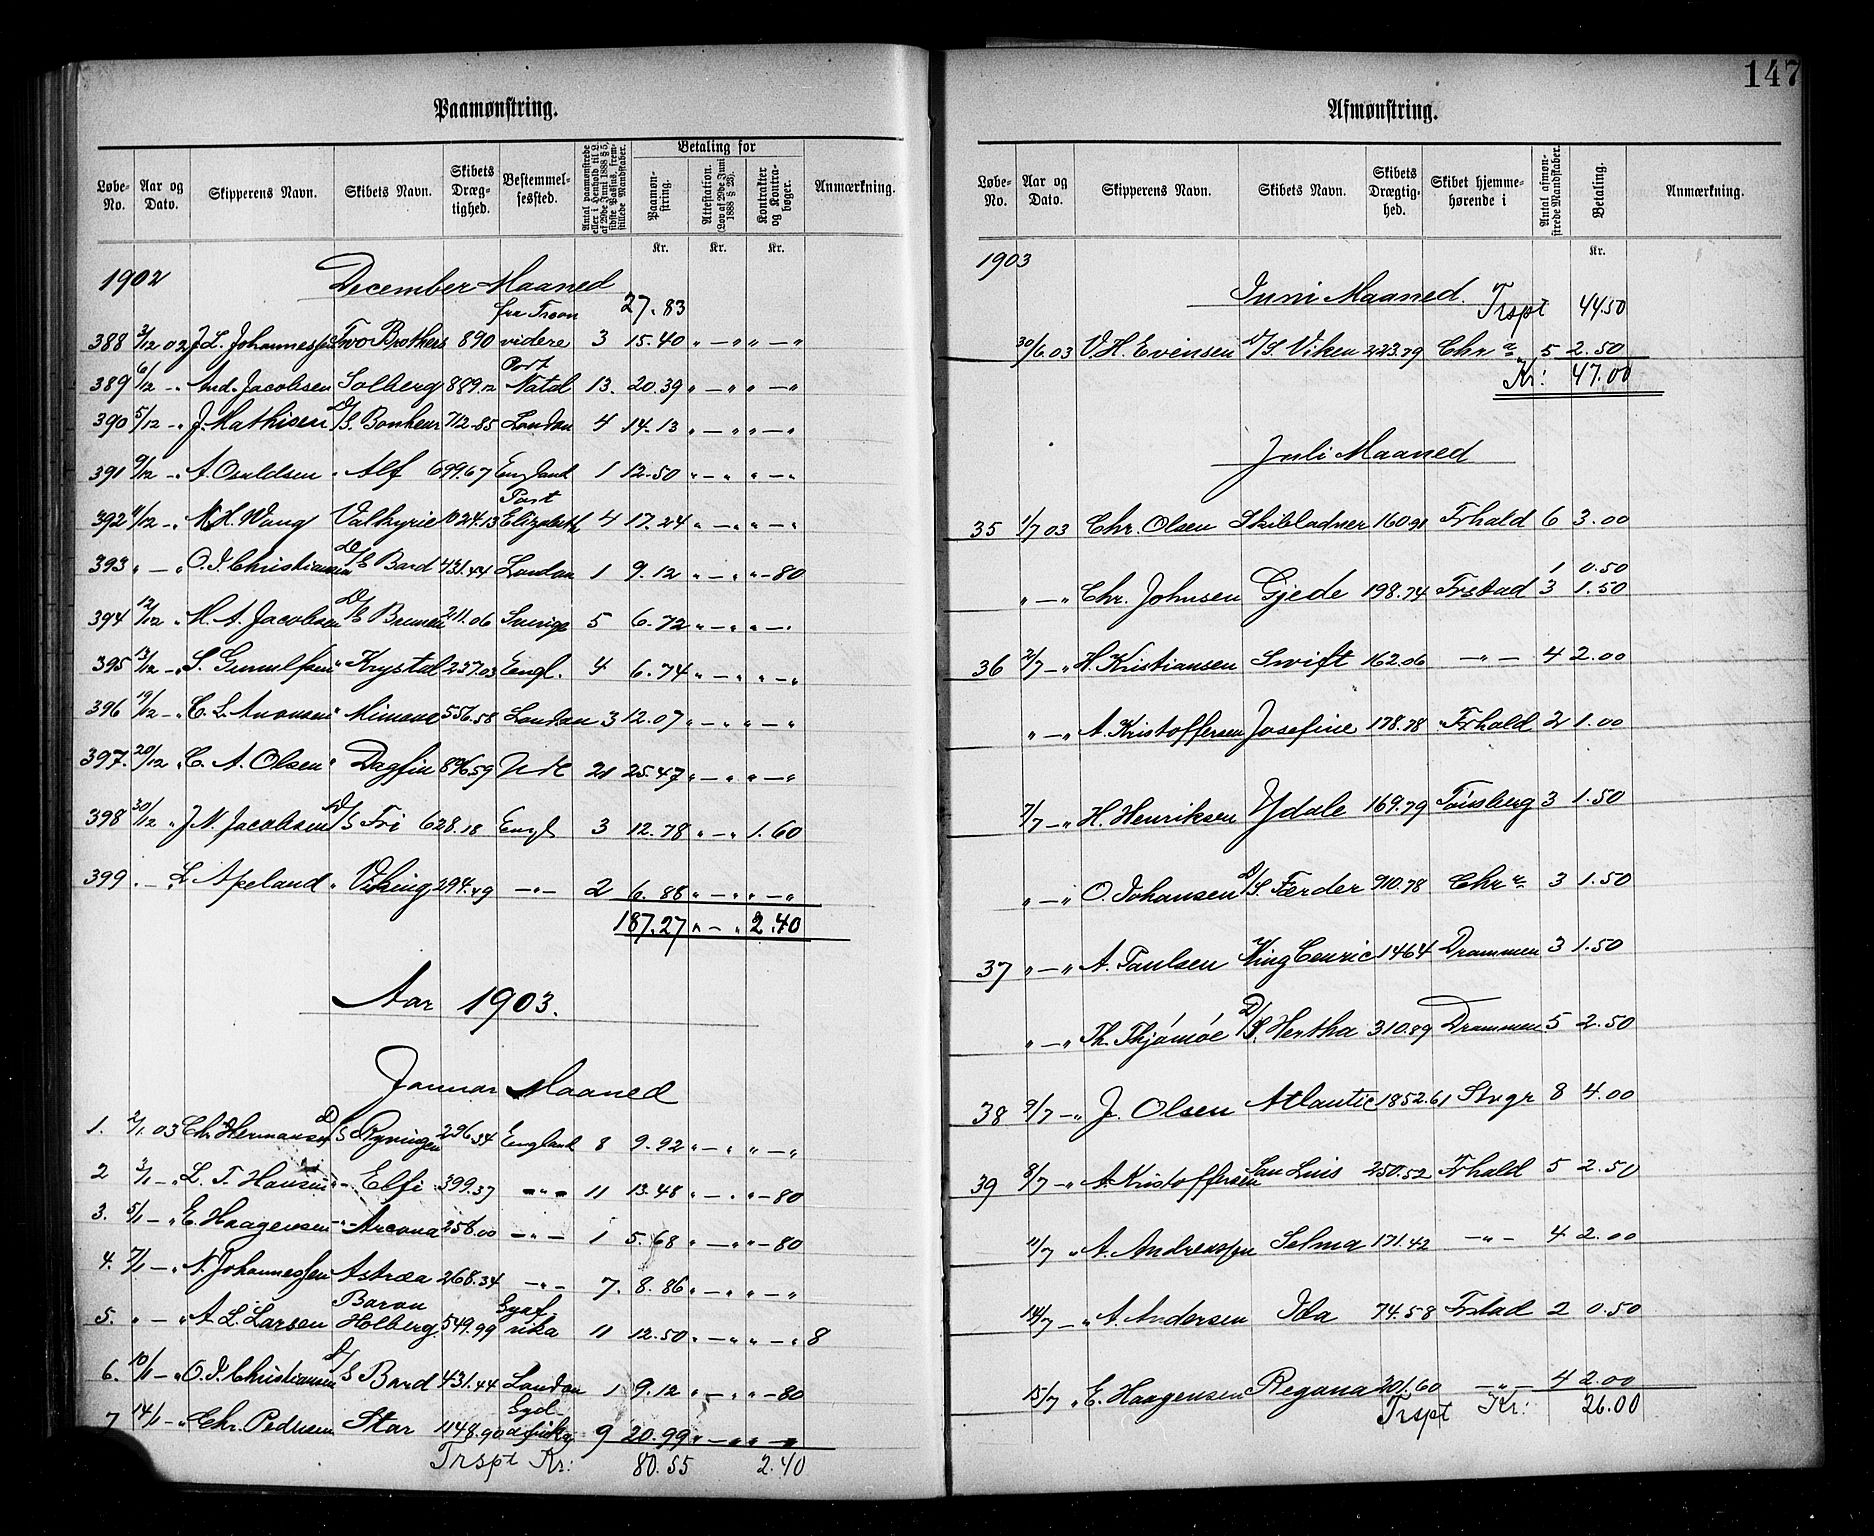 Paamønstring.
Løbe-No. Aar og Dato. Skipperens Navn. Skibets Navn. Skibets Dræg-tighed. Bestemmel-sessted. Antal paamønstrede eller i Henhold til L. af 29de Juni 1888 § 5, sidste Passus, frem-stillede Mandskaber. Betaling for Paamøn-string. Attestation. (Lov af 29de Juni 1888 § 28). Kontrakter og Kontra-bøger. Anmærkning.
Kr. Kr. Kr.
1902 December Maaned
27.83
fra Troon
388 3/12 02 J.L. Johannessen Two Brothers 890 videre 3 15.40 " — " " — "
Port
389 6/12 - " And. Jacobsen Solberg 889.12 Natal 13. 20.39 " — " " — "
390 5/12 - " J. Mathisen D/S. Bonheur 712.85 London 4 14.13 " — " " — "
391 9/12 - " A. " Alf 699.67 England 1 12.50 " — " " — "
Port
392 9/12 - " Wang Valkyrie 1024.13 Elizabeth 4 17.24 " — " " — "
393 " — " O.J. Christiansen D/S Bard 431.44 London 1 9.12 " — " " - 80
394 12/12 " M. A. Jacobsen D/S Bremen 211.06 Sverige 5 6.72 " — " " — "
395 13/12 - " S. " Krystal 237.03 Engl. 4 6.74 " — " " — "
396 19/12 - " C. L. " 556.58 London 3 12.07 " — " " — "
397. 20/12 " C. A. Olsen " Dagfin 896.59 21 25.47 " — " " — "
398 30/12 " J N. Jacobsen D/S Fri 628.18 Engl 3 12.78 " — " 1.60
399 " — " L Apeland " Viking 294.49 — " — 2 6.88 " — " " — "
187.27 " — " 2.40
Aar 1903.
Januar Maaned
1. 2/1. 03 Ch. Hermansen D/S Ryvingen 296.34 England 8 9.92 " — " " — "
2 3/1 - " L. T. Hansen " Elfi 399.37 — " — 11 13.48 " — " " - 80
3. 5/1 - " E. Haagensen - " - Arcona 258.00 — " — 1 5.68 " — " " - 80
4. 7/1 - " N. Johannessen Astræa 268.34 — " — 7. 8.86 " — " " — "
Baron Syaf-
5. " — " A. L. Larsen Holberg 549.99 rika 11 12.50 " — " " — " 8
6. 10/1 - " O.J. Christiansen D/S Bard 431.44 London 1 9.12 " — " " - 80
Syd
7 14/1 - " Chr. Pedersen Star 1148.90 afrika 9 20.99 " — " " — "
Trspt Kr: 80.55 2.40
147
Afmønstring.
Løbe-No. Aar og Dato. Skipperens Navn. Skibets Navn. Skibets Drægtig-hed. Skibet hjemme-hørende i Antal afmøn-strede Mandskaber. Betaling. Anmærkning.
Kr.
1903
Juni Maaned. Trspt 44.50
30/6 03 V.H. Evensen D/S. Viken 223.79 Chr a 5 2.50
Kr: 47.00
Juli Maaned
35 1/7 03 Chr. Olsen Skibladner 160.91 Frhald 6 3.00
1 0.50
" — " Chr. Johnsen Gjede 198.74 Frstad 3 1.50
36 2/7 - " H. Kristiansen Swift 162.06 — " — 4 2.00
" — " A. Kristoffersen Josefine 178.78 Frhald 2 1.00
7/7 - " H. Henriksen Ydale 169.79 Tønsberg 3 1.50
" — " O. Johansen D/S. Færder 910.78 Chr a 3 1.50
37 " — " A. Paulsen King Cenric 1464 Drammen 3 1.50
" — " Th. Thjømøe D/S. Hertha 310.89 Drammen 5 2.50
38 9/7 - " J. Olsen Atlantic 1852.61 Stvgr 8 4.00
39 8/7 - " A. Kristoffersen San Luis 250.52 Frhald 5 2.50
11/7 " A. Andreassen Selma 171.42 — " — 4 2.00
14/7 - " A. Andersen Ida 74.58 Frstad 2 0.50
15/7 " E. Haagensen Regana 201.60 — " — 4 2.00
Trspt Kr: 26.00